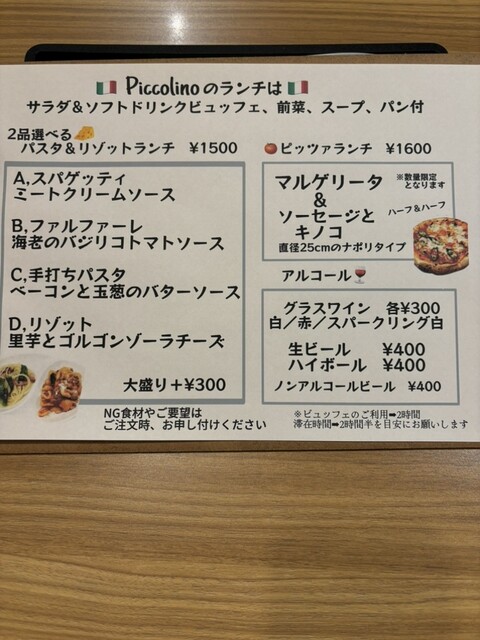 Piccolinoのランチは
サラダ＆ソフトドリンクビュッフェ、前菜、スープ、パン付
2品選べる
パスタ＆リゾットランチ ¥1500
A,スパゲッティ
ミートクリームソース
B,ファルファーレ
海老のバジリコトマトソース
C,手打ちパスタ
ベーコンと玉葱のバターソース
D,リゾット
里芋とゴルゴンゾーラチーズ
大盛り＋¥300
NG食材やご要望は
ご注文時、お申し付けください
ピッツァランチ ¥1600
マルゲリータ
&
ソーセージと
キノコ
直径25cmのナポリタイプ
※数量限定
となります
ハーフ＆ハーフ
アルコール
グラスワイン 各¥300
白／赤／スパークリング白
生ビール ¥400
ハイボール ¥400
ノンアルコールビール ¥400
※ビュッフェのご利用➡2時間
滞在時間➡2時間半を目安にお願いします